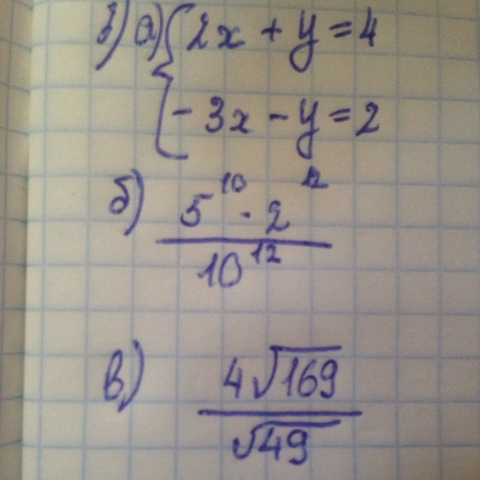 3) а) { 2x + y = 4
- 3x - y = 2
б) 5^10 · 2^12 / 10^12
в) 4√169 / √49